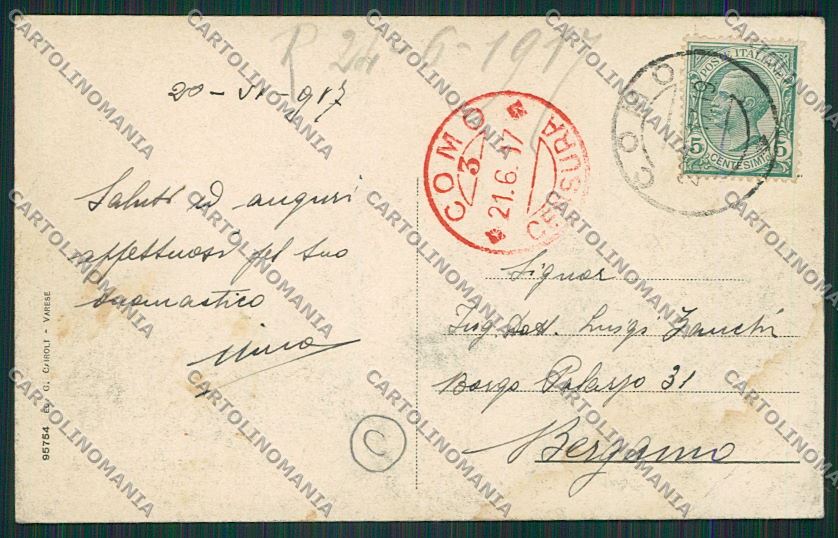 R 24-6-1917
20-VI-917
Saluti ed auguri
affettuosi pel suo
onomastico
COMO
3
21.6.17
CENSURA
COMO
POSTE ITALIANE
5 5
CENTESIMI
Signor
Ing. Dott. Luigi Zanchi
Borgo Palazzo 31
Bergamo
95754 ED. G. CHIROLI - VARESE
C
CARTOLINOMANIA